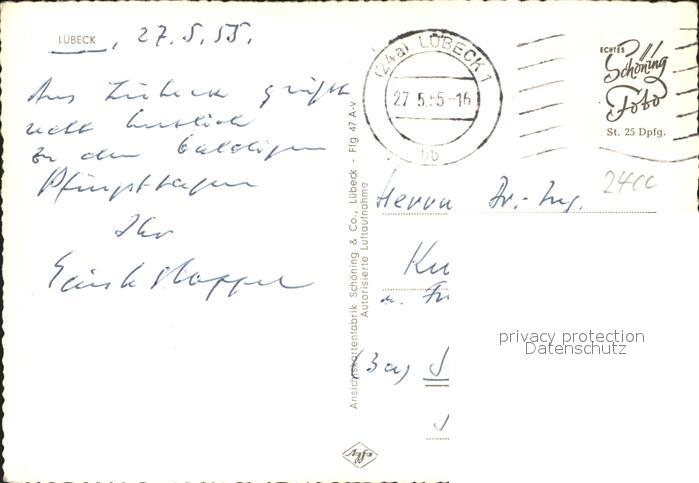 LÜBECK, 27.5.55.
Aus Lübeck grüßt
recht herzlich
zu den baldigen
Pfingsttagen
Ihr
(24a) LÜBECK 1
27.5.55-16
bb
ECHTES
Schöning
Foto
St. 25 Dpfg.
2400
Herrn Dr.-Ing.
Ku
u. Fr
(3a)
Ansichtskartenfabrik Schöning & Co., Lübeck - Flg 47 A-v
Autorisierte Luftaufnahme
Agfa
privacy protection
Datenschutz